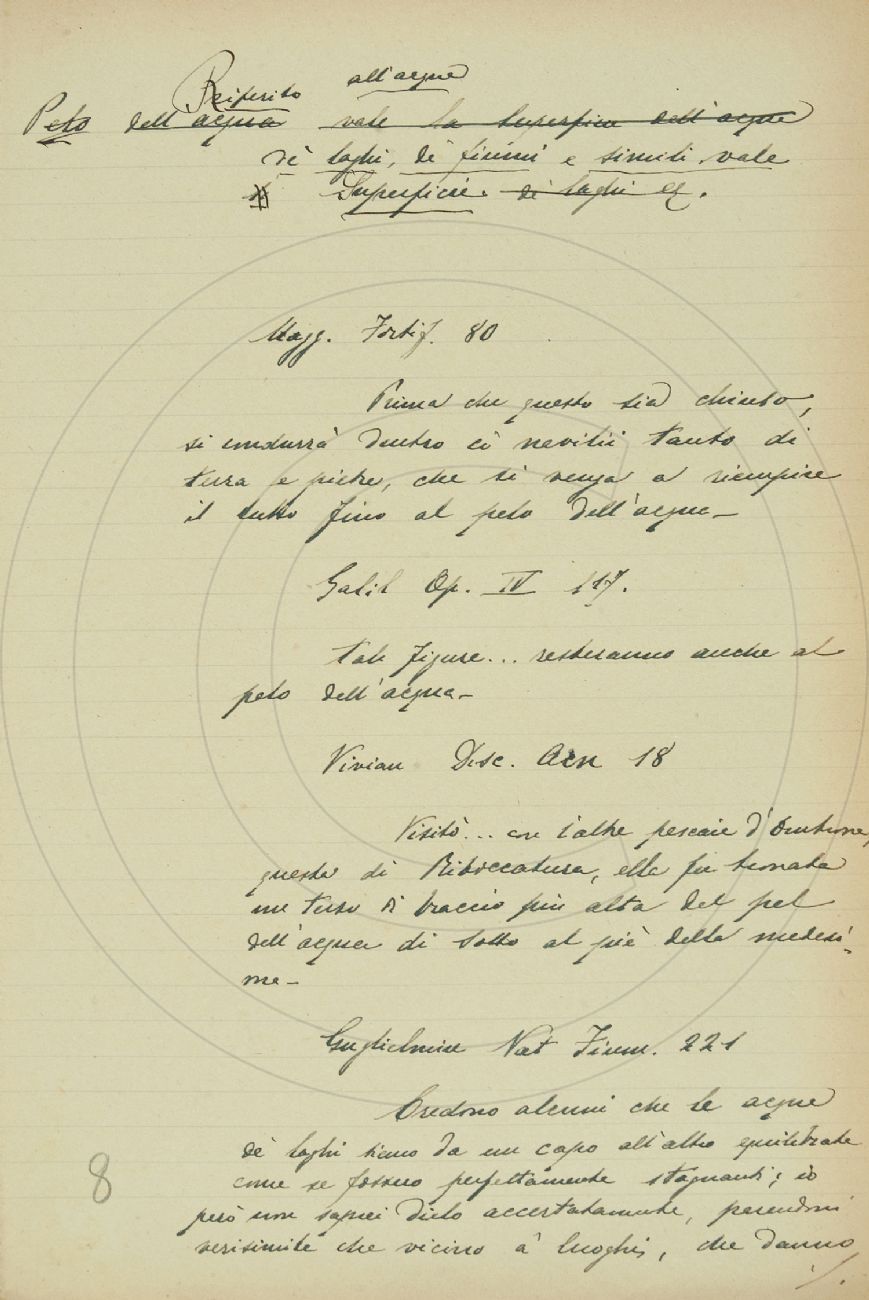 Riferito all'acque
Pelo dell'acqua vale la superficie dell'acque
de' laghi, de' fiumi e simili, vale
Superficie. di laghi ec.
Magg. Fortif. 80
Prima che questo sia chiuso,
si condurrà dentro co' navilii tanto di
terra e pietre, che si venga a riempire
il tutto fino al pelo dell'acqua_
Galil Op. IV 117.
Tali figure... resteranno anche al
pelo dell'acqua_
Vivian Disc. Arn 18
Visitò... con l'altre pescaie d'Ombrone,
questa di Riboccatura, ella fu trovata
un terzo di braccio più alta del pel
dell'acqua di sotto al piè della medesi-
ma_
Guglielmin Nat Fium. 221
Credono alcuni che le acque
de' laghi siano da un capo all'altro equilibrate
come se fossero perfettamente stagnanti; io
però non saprei dirlo accertatamente, parendomi
verisimile che vicino a' luoghi, che danno
./.
8